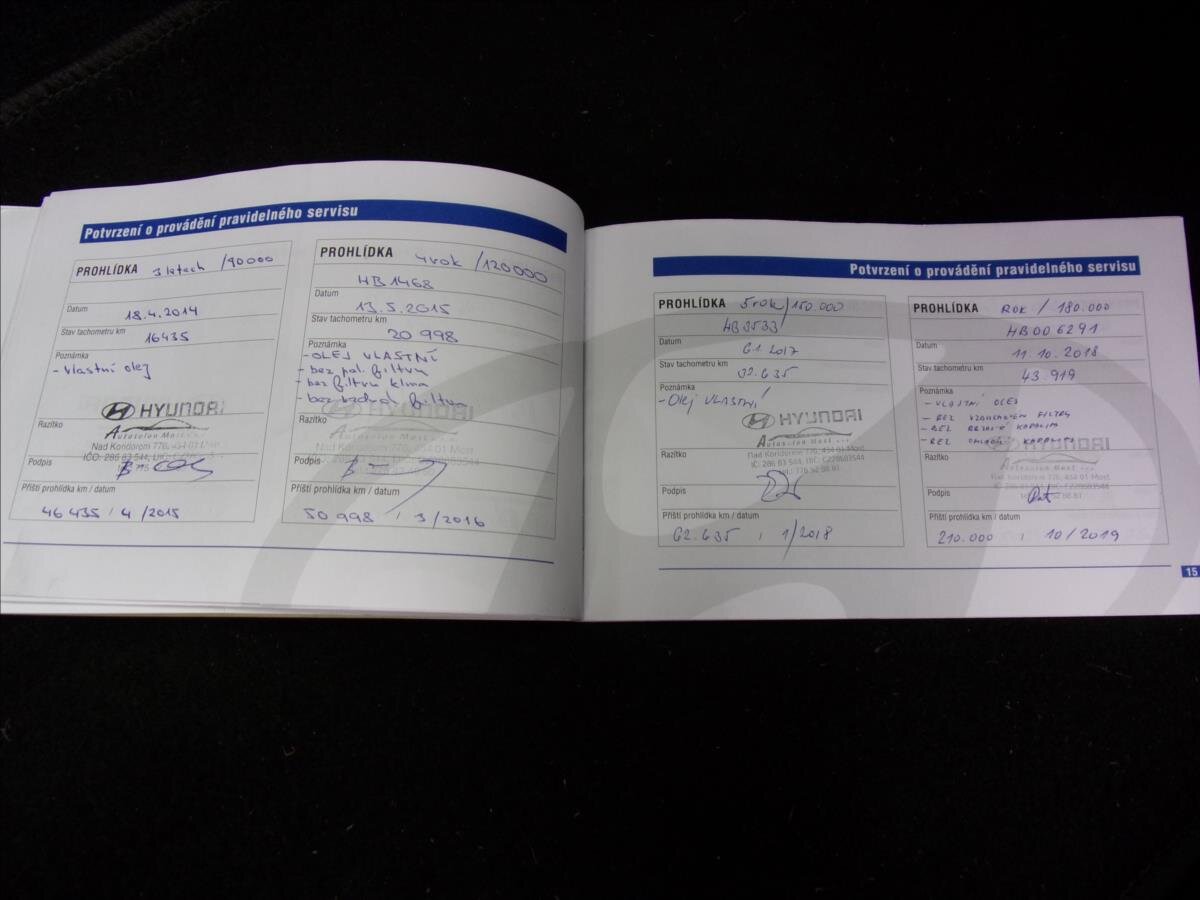 Potvrzení o provádění pravidelného servisu
PROHLÍDKA 3 letech /90000
Datum 18.4.2014
Stav tachometru km
16435
Poznámka
- vlastní olej
HYUNDAI
Autosalon Most s.r.o.
Razítko
Nad Koridorem 776, 434 01 Most
IČO: 286 83 544,
Podpis
Příští prohlídka km / datum
46 435 / 4 /2015
PROHLÍDKA 4 rok /120000
HB1468
Datum
13.5.2015
Stav tachometru km
20 998
Poznámka
- OLEJ VLASTNÍ
- bez pal. filtru
- bez filtru klima
- bez vzduch filtru
HYUNDAI
Razítko
Autosalon Most
Nad Koridorem 776, 434 01 Most
Podpis
Příští prohlídka km / datum
50 998 / 3/2016
Potvrzení o provádění pravidelného servisu
PROHLÍDKA 5 rok/150.000
HB3533
Datum
6.1.2017
Stav tachometru km
32.635
Poznámka
- Olej VLASTNÍ
HYUNDAI
Autosalon Most s.r.o.
Nad Koridorem 776, 434 01 Most
Razítko
IČ: 286 83 544, DIČ: CZ28683544
Tel.: 776 52 88 81
Podpis
Příští prohlídka km / datum
62.635 / 1/2018
PROHLÍDKA ROK / 180.000
HB006291
Datum
11.10.2018
Stav tachometru km
43.919
Poznámka
- VLASTNÍ OLEJ
- BEZ FILTRŮ
- BEZ BRZDOVÉ KAPALIN
- BEZ CHLADÍCÍ KAPALINY
HYUNDAI
Razítko
Autosalon Most s.r.o.
Nad Koridorem 776, 434 01 Most
Podpis
Příští prohlídka km / datum
210.000 / 10/2019
15